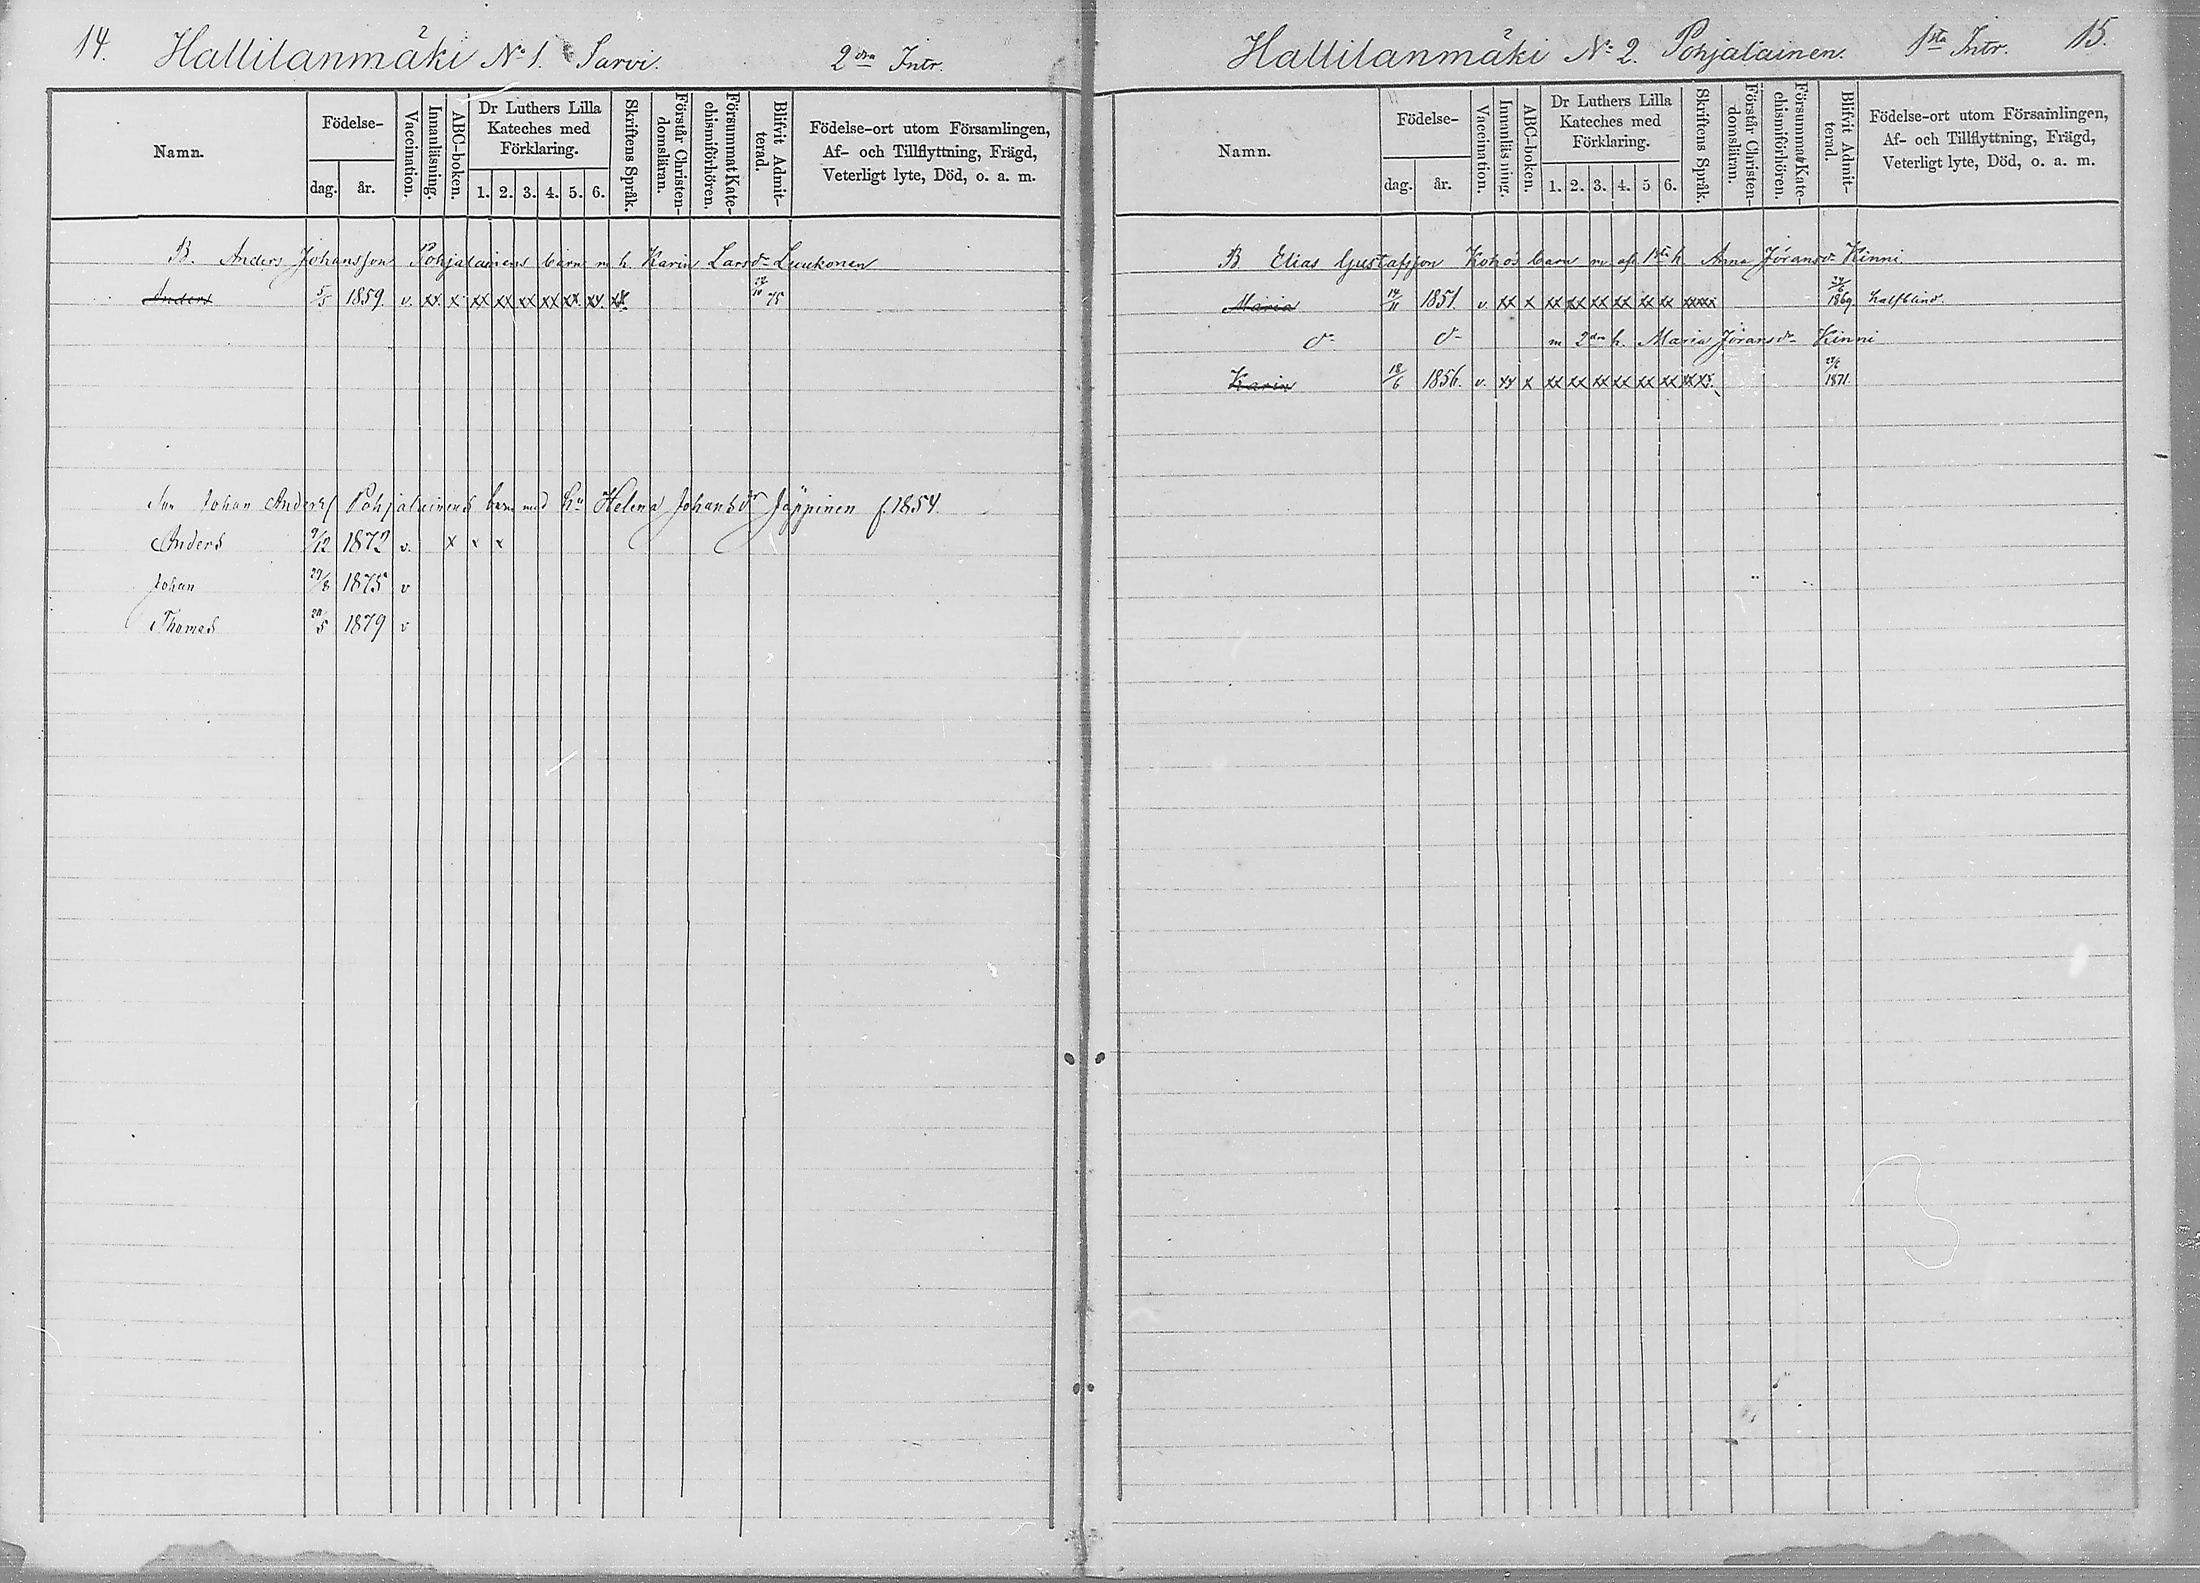 14. Hallilanmäki No 1. Sarvi. 2dra Intr.
Namn.
Födelse-
dag. år.
Vaccination.
Innanläsning.
ABC-boken.
Dr Luthers Lilla
Kateches med
Förklaring.
1. 2. 3. 4. 5. 6.
Skriftens Språk.
Förstår Christen-
domsläran.
Försummat Kate-
chismiförhören.
Blifvit Admit-
terad.
Födelse-ort utom Församlingen,
Af- och Tillflyttning, Frägd,
Veterligt lyte, Död, o. a. m.
B. Anders Johansson Pohjalainens barn m h. Karin Larsdr Luukonen
Anders 5/5 1859. v. xx x xx xx xx xx xx xx xx 75
Son Johan Anderss Pohjalainens barn med hu Helena Johansdr Jäppinen f. 1854.
Anders 9/12 1872 v. x x x
Johan 29/8 1875 v
Thomas 20/5 1879 v
Hallilanmäki No 2. Pohjalainen. 1sta Intr. 15.
Namn.
Födelse-
dag. år.
Vaccination.
Innanläsning.
ABC-boken.
Dr Luthers Lilla
Kateches med
Förklaring.
1. 2. 3. 4. 5 6.
Skriftens Språk.
Förstår Christen-
domsläran.
Försummat Kate-
chismiförhören.
Blifvit Admit-
terad.
Födelse-ort utom Församlingen,
Af- och Tillflyttning, Frägd,
Veterligt lyte, Död, o. a. m.
B Elias Gustafsson Kohos barn m afl 1sta h. Anna Jöransdr Kinni
Maria 14/11 1851. v. xx x xx xx xx xx xx xx xxxx 24/6 1869. halfblind.
dr dr m 2dra h. Maria Jöransdr Kinni
Karin 18/6 1856. v. xx x xx xx xx xx xx xx xx xx. 1871.